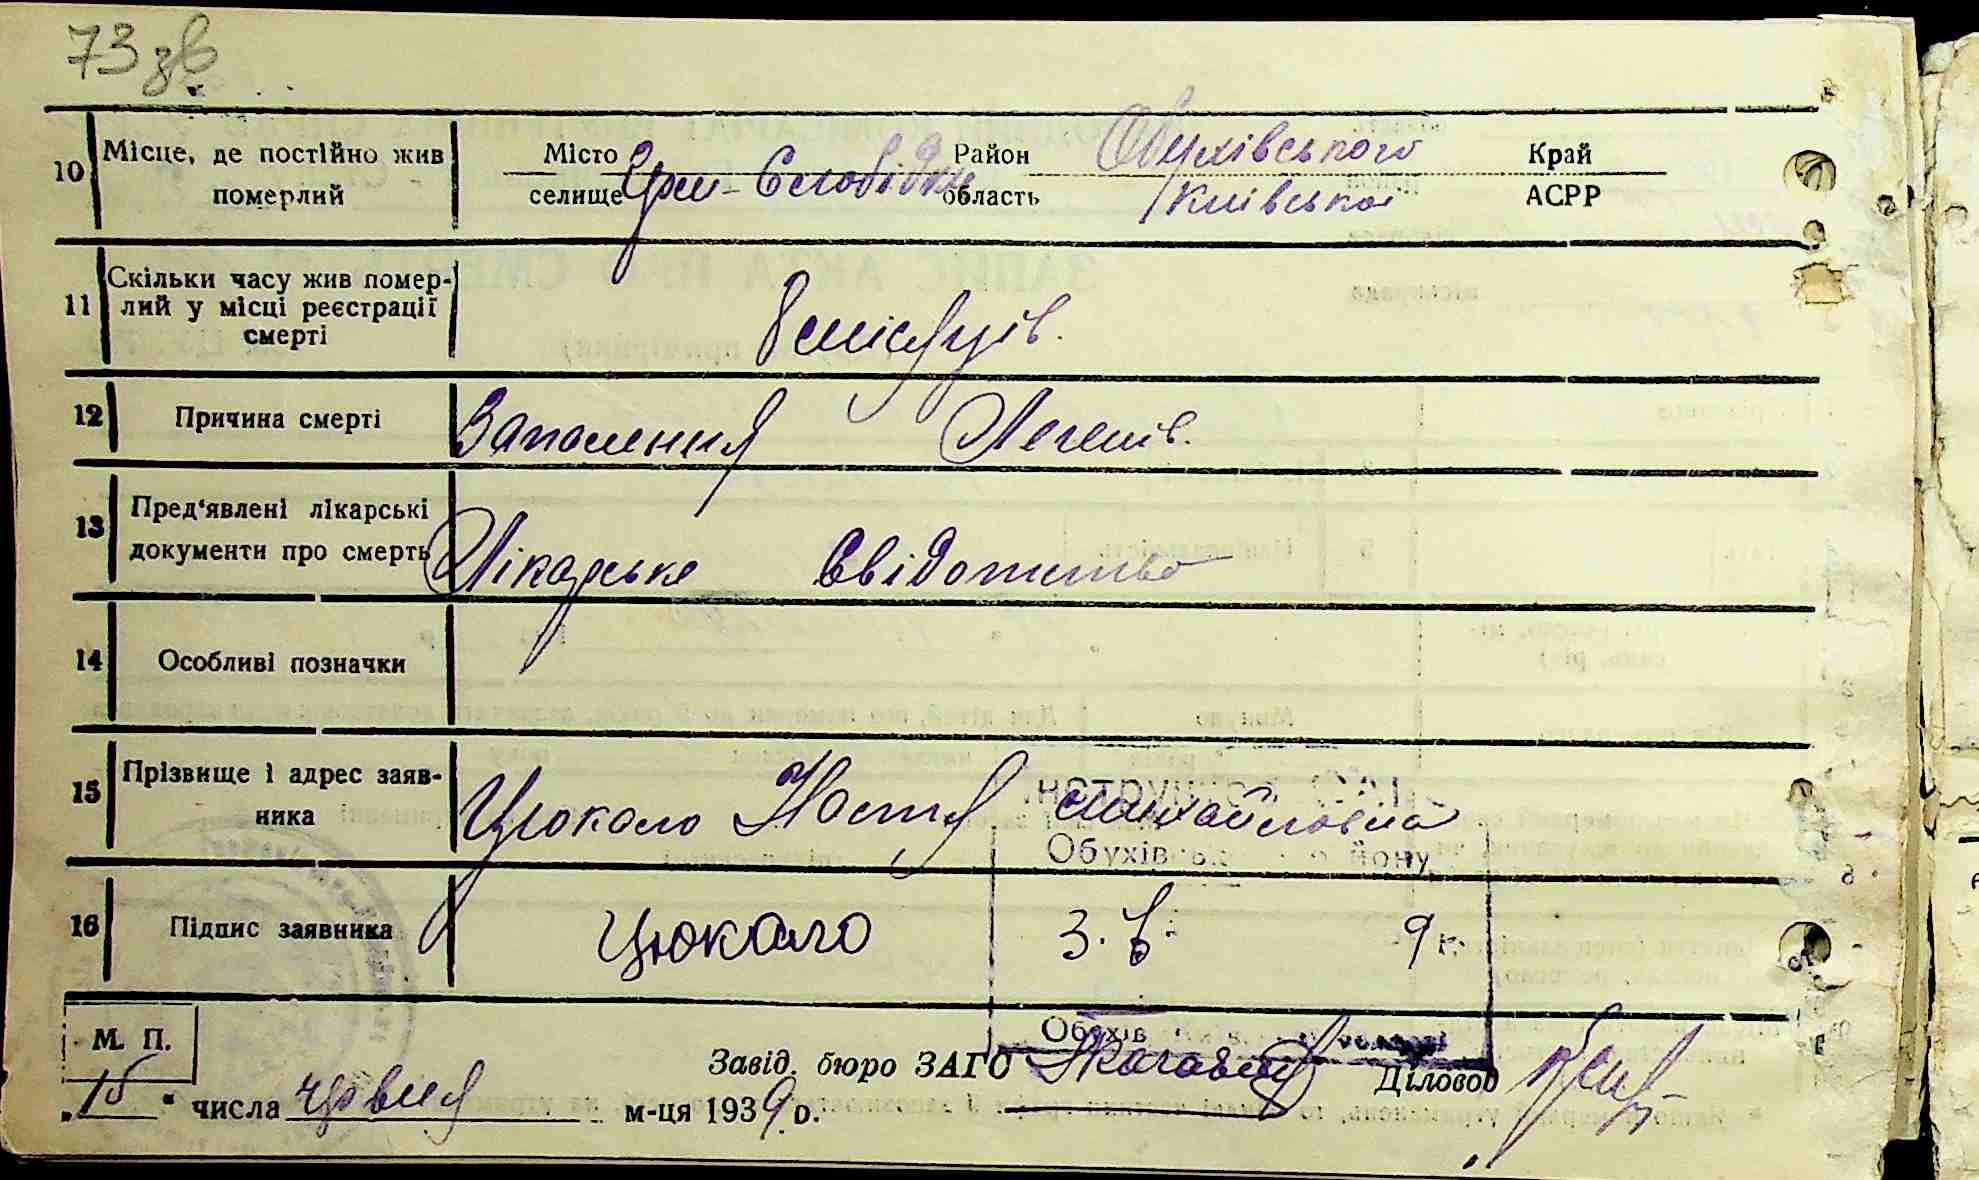 73 зв
10 Місце, де постійно жив Місто Район Обухівського Край
померлий селище Слобідка область Київської АСРР
11 Скільки часу жив помер-
лий у місці реєстрації
смерті 8 місяців.
12 Причина смерті Запалення Легенів.
13 Пред'явлені лікарські
документи про смерть Лікарське Свідотство
14 Особливі позначки
15 Прізвище і адрес заяв-
ника Цюкало Настя Михайловна
Обухів йону
16 Підпис заявника Цюкало З. 9 г.
М. П. Обухів
Завід. бюро ЗАГС Діловод
„15“ числа червня м-ця 1939 р.